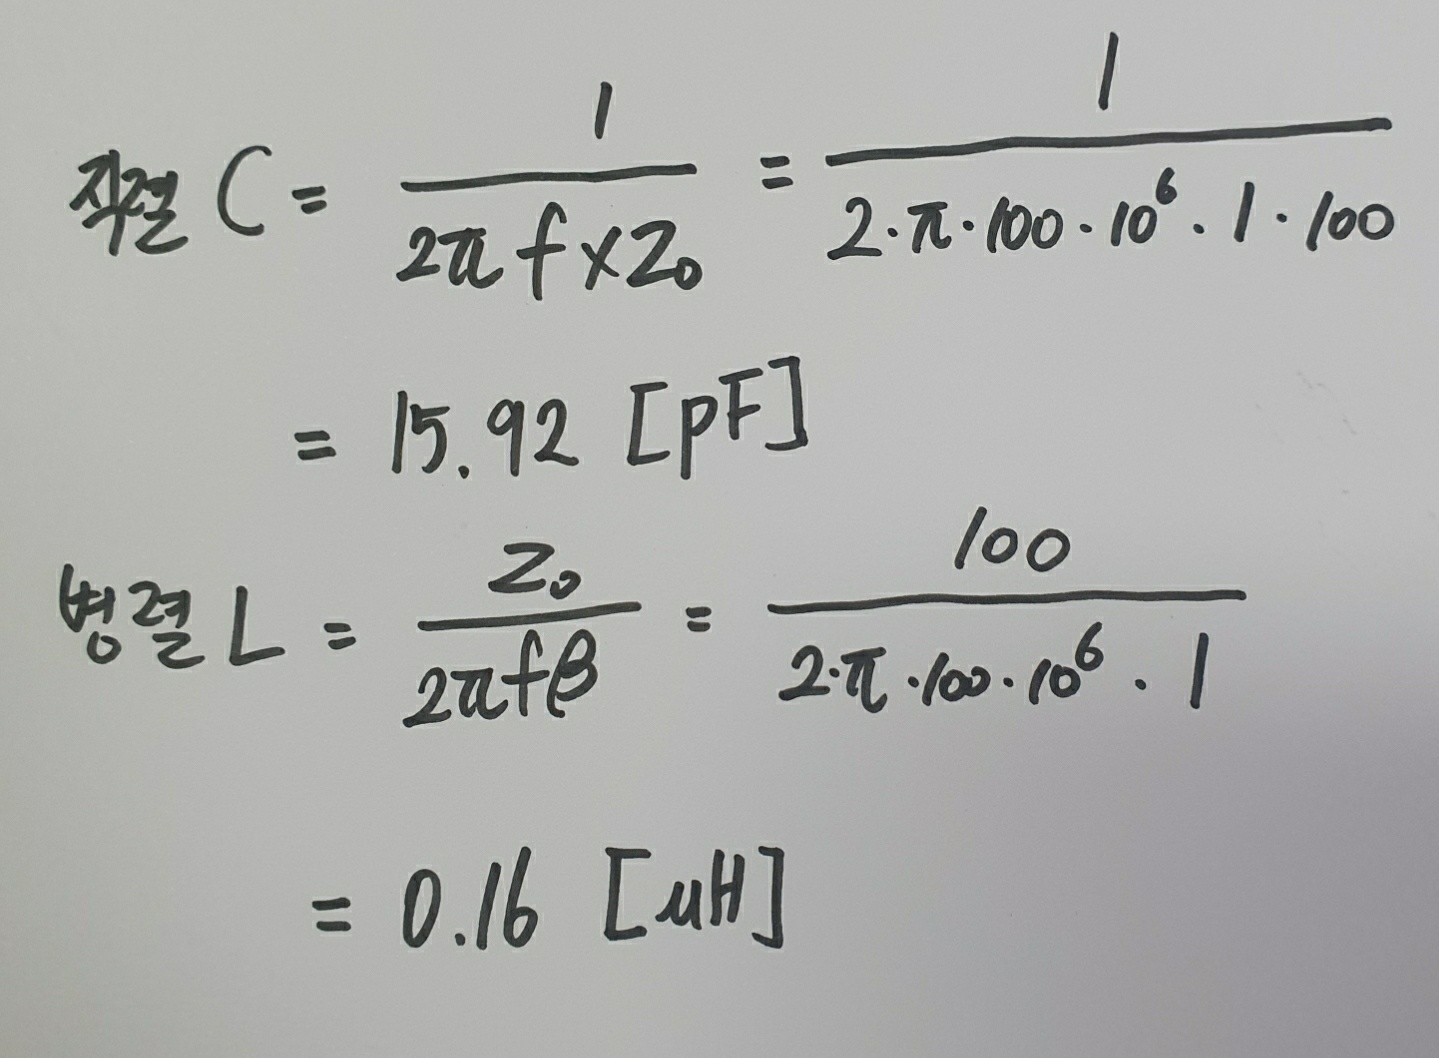 직렬 C = 1 / 2π f x Z₀ = 1 / 2·π·100·10⁶·1·100
= 15.92 [pF]
병렬 L = Z₀ / 2πfβ = 100 / 2·π·100·10⁶·1
= 0.16 [μH]